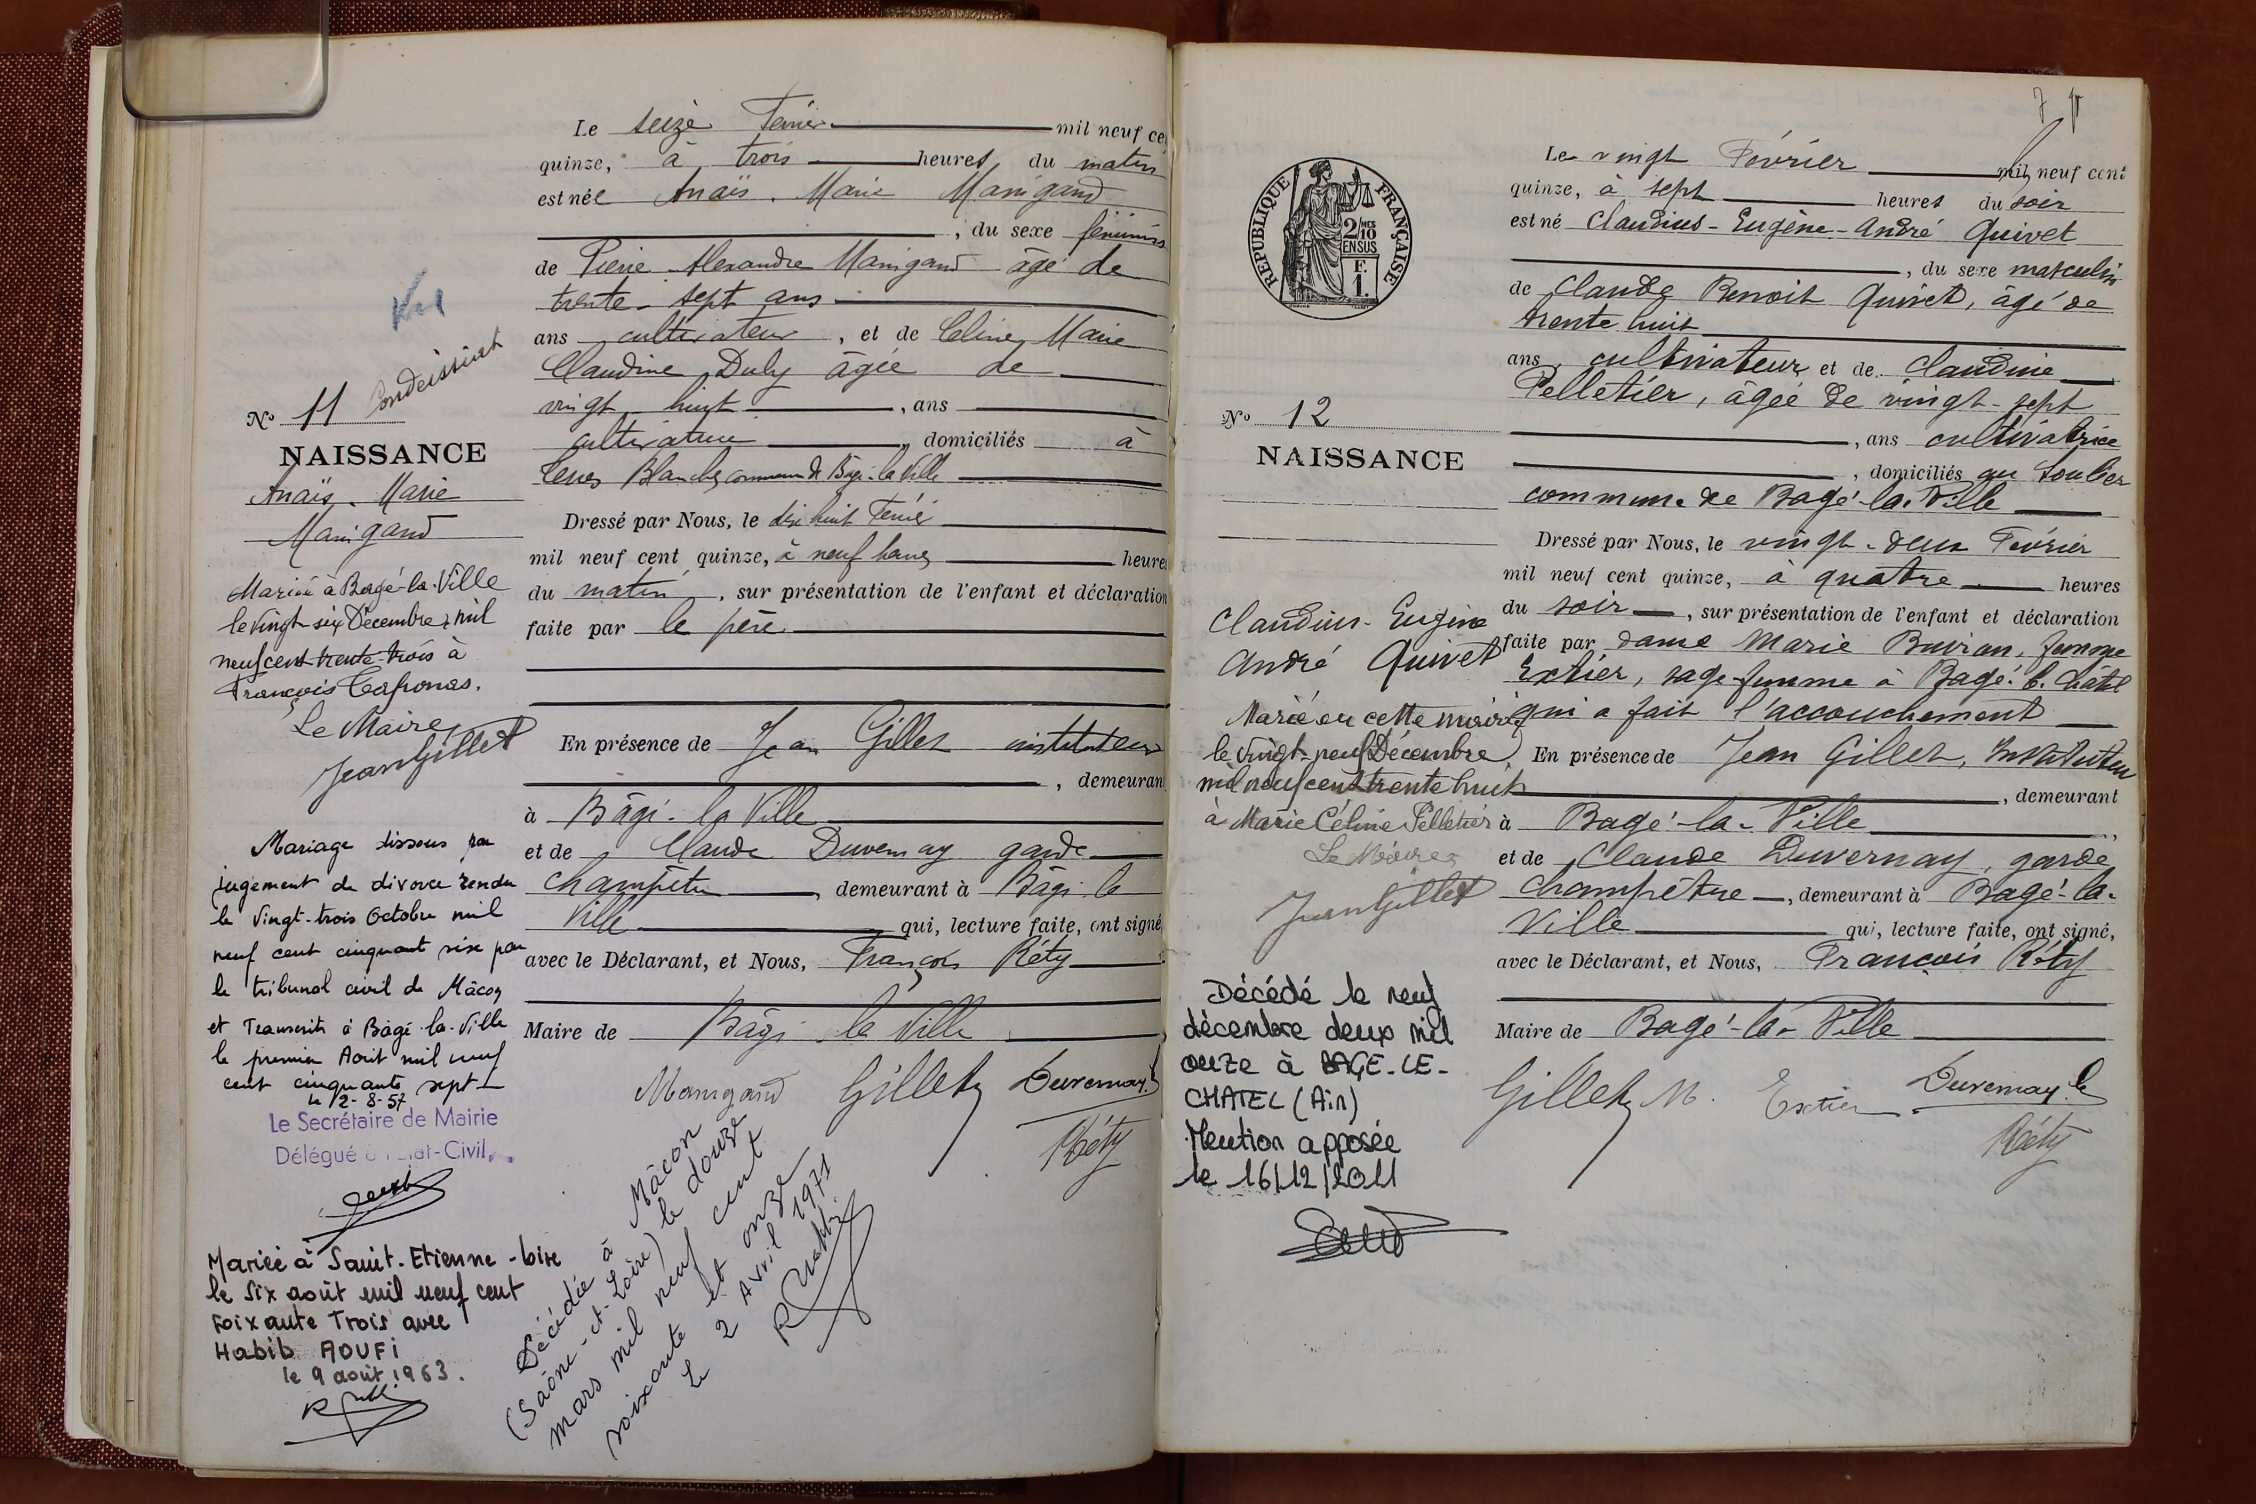 Le seize Février mil neuf ce
quinze, à trois heures du matin
est née Anaïs. Marie Manigand
, du sexe féminin
de Pierre Alexandre Manigand âgé de
trente-sept ans
ans cultivateur, et de Céline Marie
Claudine Duby âgée de
vingt huit, ans
cultivatrice, domiciliés à
Terres Blanches commune de Bâgé-la Ville
Dressé par Nous, le dix huit Février
mil neuf cent quinze, à neuf heures heures
du matin, sur présentation de l'enfant et déclaration
faite par le père
En présence de Jean Gillet instituteur
, demeuran
à Bâgé-la Ville
et de Claude Duvernay garde
champêtre, demeurant à Bâgé la
Ville qui, lecture faite, ont signé
avec le Déclarant, et Nous, François Réty
Maire de Bâgé la Ville
Manigand Gillet Duvernay C
Réty
Condeissiat
N° 11
NAISSANCE
Anaïs. Marie
Manigand
Mariée à Bâgé-la-Ville
le vingt-six Décembre mil
neuf cent trente-trois à
François Taponas.
Le Maire
Jean Gillet
Mariage dissous par
jugement de divorce rendu
le vingt-trois Octobre mil
neuf cent cinquante six par
le tribunal civil de Mâcon
et Transcrit à Bâgé-la-Ville
le premier Août mil neuf
cent cinquante sept
le 2-8-57
Le Secrétaire de Mairie
Délégué à l'Etat-Civil,
Mariée à Saint-Etienne-Loire
le Six août mil neuf cent
soixante Trois avec
Habib AOUFI
le 9 août 1963.
Décédée à Mâcon
(Saône-et-Loire) le douze
mars mil neuf cent
soixante et onze
le 2 Avril 1971
7
Le vingt Février mil neuf cent
quinze, à sept heures du soir
est né Claudius-Eugène-André Quivet
, du sexe masculin
de Claude Benoit Quivet, âgé de
trente huit
ans, cultivateur et de Claudine
Pelletier, âgée de vingt-sept
, ans cultivatrice
, domiciliés au Soulier
commune de Bagé-la-Ville
Dressé par Nous, le vingt-deux Février
mil neuf cent quinze, à quatre heures
du soir, sur présentation de l'enfant et déclaration
faite par dame Marie Buiron, femme
Extier, sage-femme à Bagé-le-Châtel
qui a fait l'accouchement
En présence de Jean Gillet, Instituteur
, demeurant
à Bagé-la-Ville,
et de Claude Duvernay, garde
champêtre, demeurant à Bagé-la-
Ville qui, lecture faite, ont signé,
avec le Déclarant, et Nous, François Réty
Maire de Bagé-la-Ville
Gillet M. Extier Duvernay C
Réty
REPUBLIQUE FRANÇAISE
2/10 MES
EN SUS
F.
1.
N° 12
NAISSANCE
Claudius-Eugène
André Quivet
Marié en cette mairie
le vingt-neuf Décembre
mil neuf cent trente huit
à Marie Céline Pelletier
Le Maire
Jean Gillet
Décédé le neuf
décembre deux mil
onze à BAGE-LE-
CHATEL (Ain)
Mention apposée
le 16/12/2011